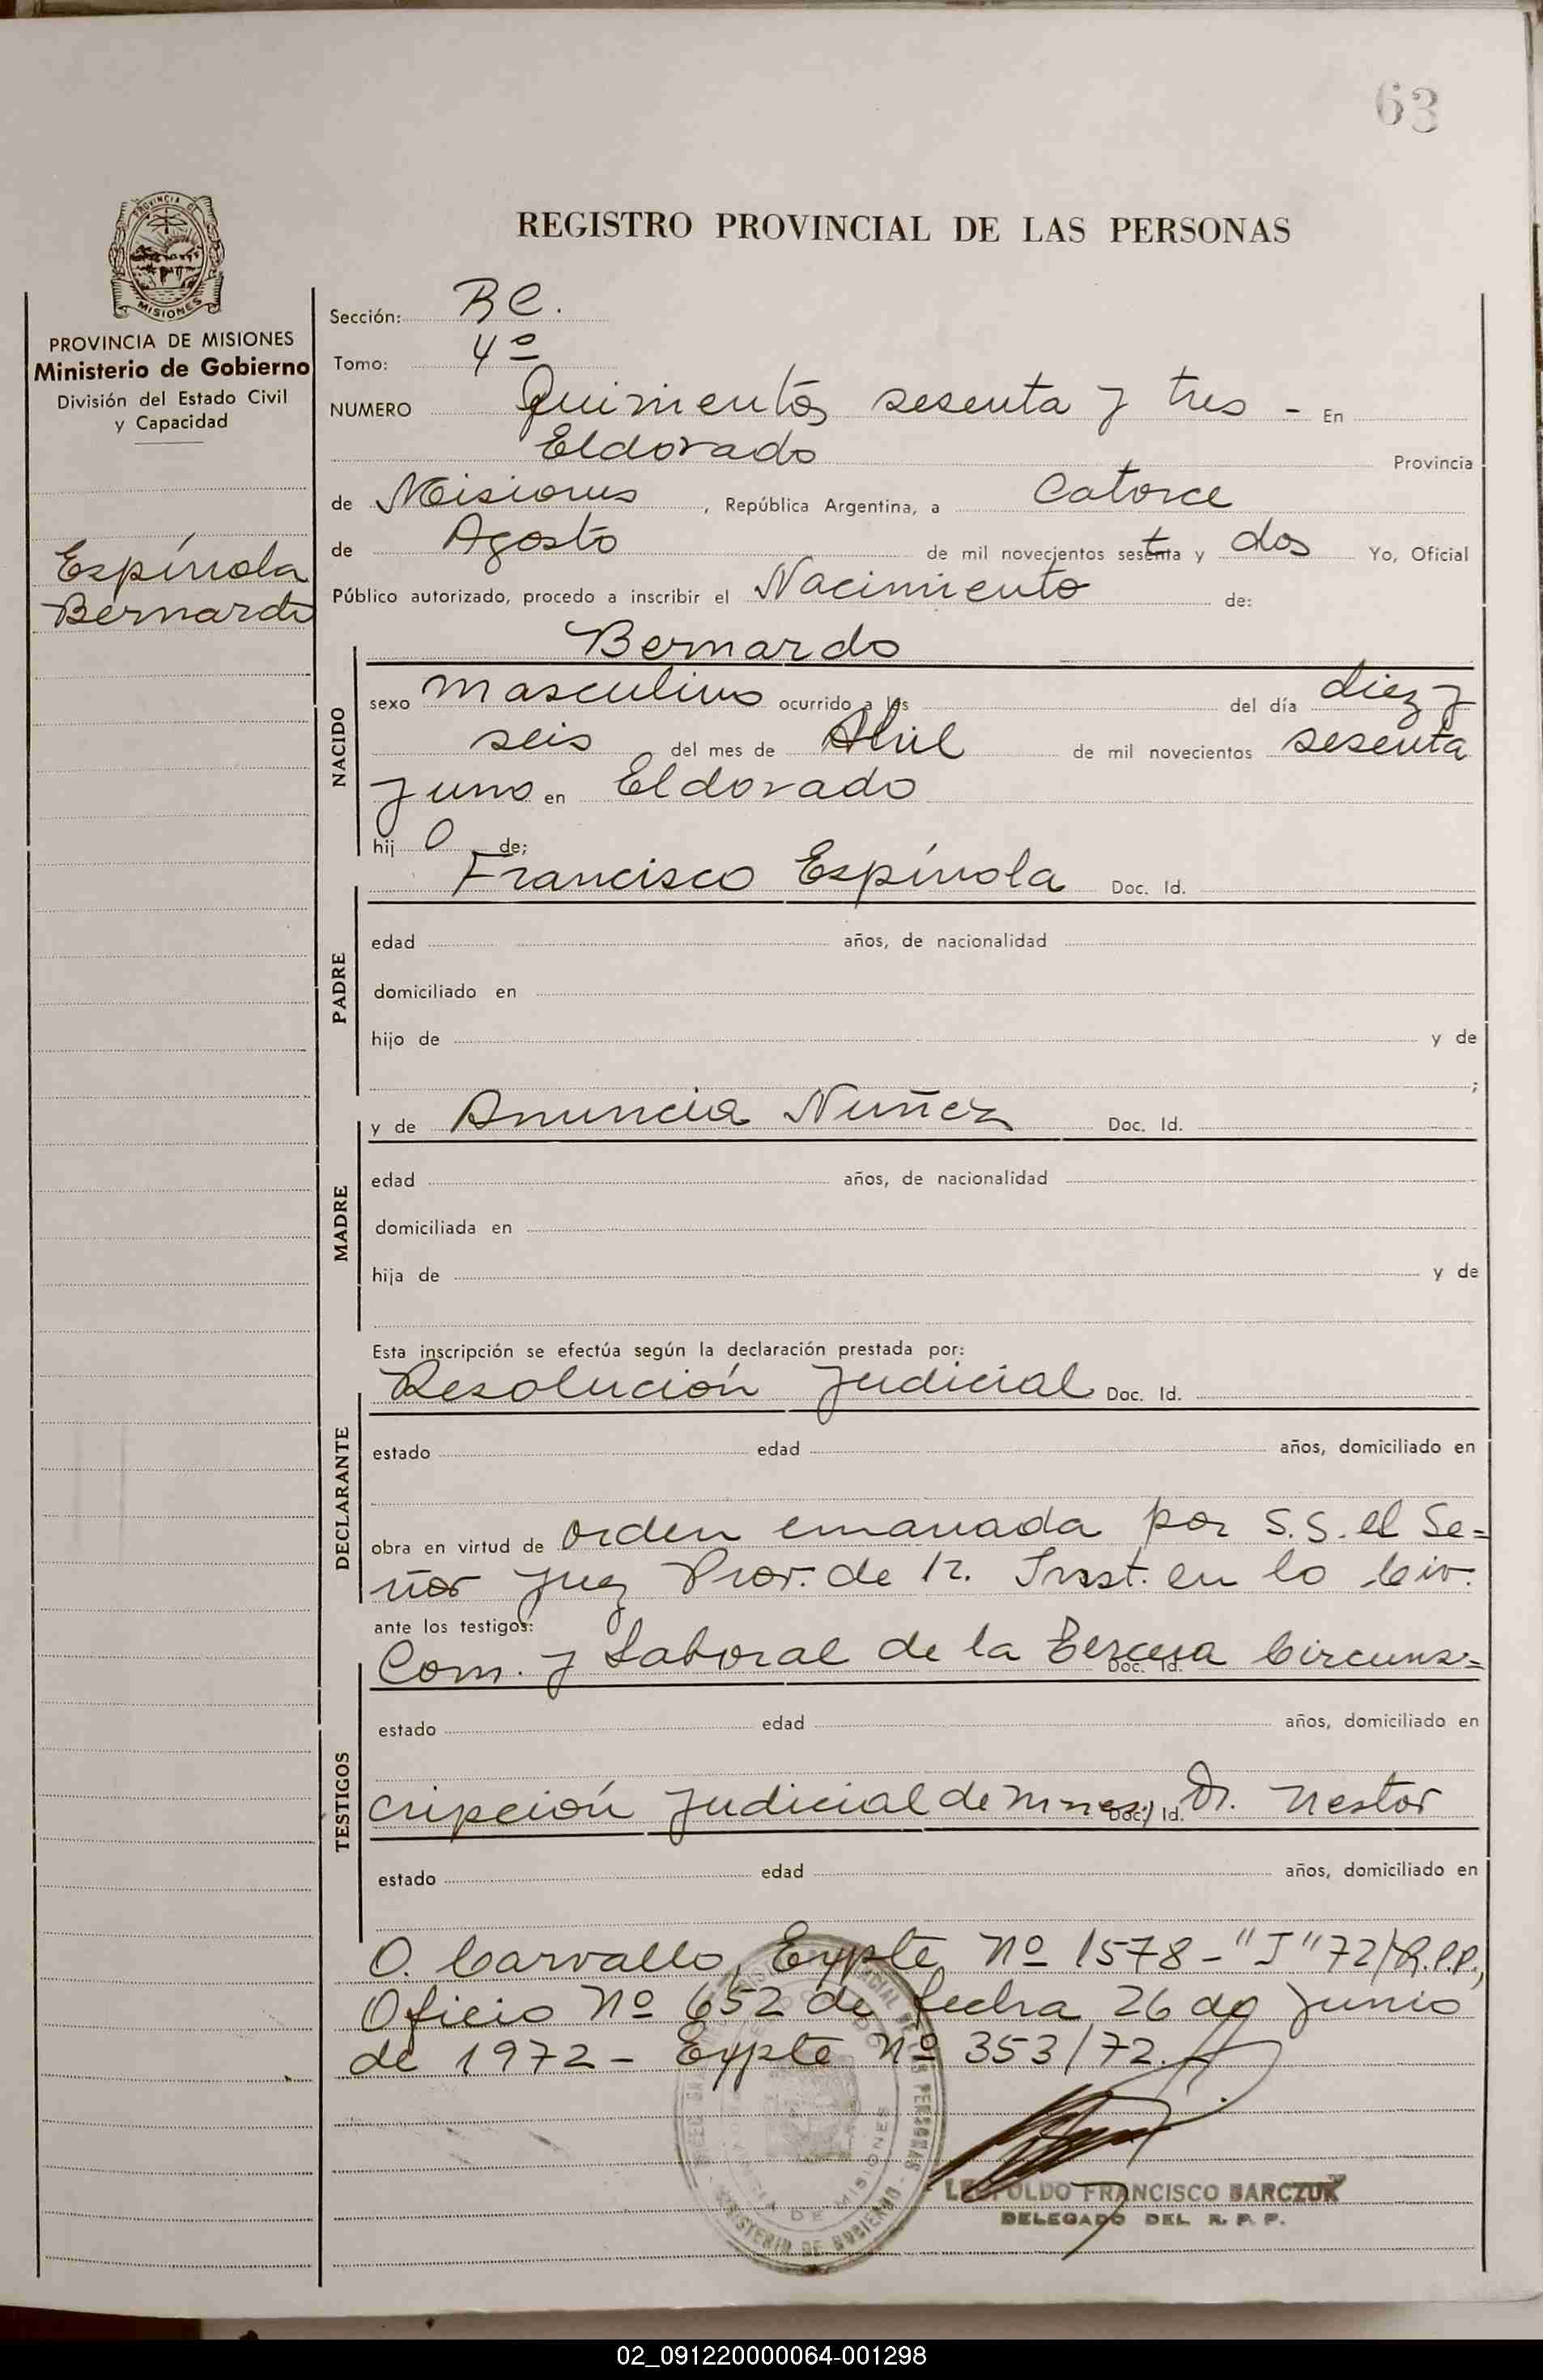 63
REGISTRO PROVINCIAL DE LAS PERSONAS
PROVINCIA DE MISIONES
Ministerio de Gobierno
División del Estado Civil
y Capacidad
Espínola
Bernardo
Sección: RC.
Tomo: 4º
NUMERO Quinientos sesenta y tres - En
Eldorado Provincia
de Misiones, República Argentina, a Catorce
de Agosto de mil novecientos setenta y dos Yo, Oficial
Público autorizado, procedo a inscribir el Nacimiento de:
Bernardo
NACIDO
sexo masculino ocurrido a las del día diez y
seis del mes de Abril de mil novecientos sesenta
y uno en Eldorado
hij o de;
Francisco Espínola Doc. Id.
PADRE
edad años, de nacionalidad
domiciliado en
hijo de y de
;
y de Anuncia Nuñez Doc. Id.
MADRE
edad años, de nacionalidad
domiciliada en
hija de y de
Esta inscripción se efectúa según la declaración prestada por:
Resolución Judicial Doc. Id.
DECLARANTE
estado edad años, domiciliado en
obra en virtud de orden emanada por S.S. el Se=
ñor Juez Prov. de 1ª. Inst. en lo Civ.
ante los testigos:
Com. y Laboral de la Tercera Circuns= Doc. Id.
TESTIGOS
estado edad años, domiciliado en
cripción Judicial de Mnes., Dr. Nestor Doc. Id.
estado edad años, domiciliado en
O. Carvallo, Expte Nº 1578-"J"72/R.P.P.,
Oficio Nº 652 de fecha 26 de Junio
de 1972 - Expte Nº 353/72.
MINISTERIO DE GOBIERNO
DE MISIONES
LEOPOLDO FRANCISCO BARCZUK
DELEGADO DEL R. P. P.
02_091220000064-001298